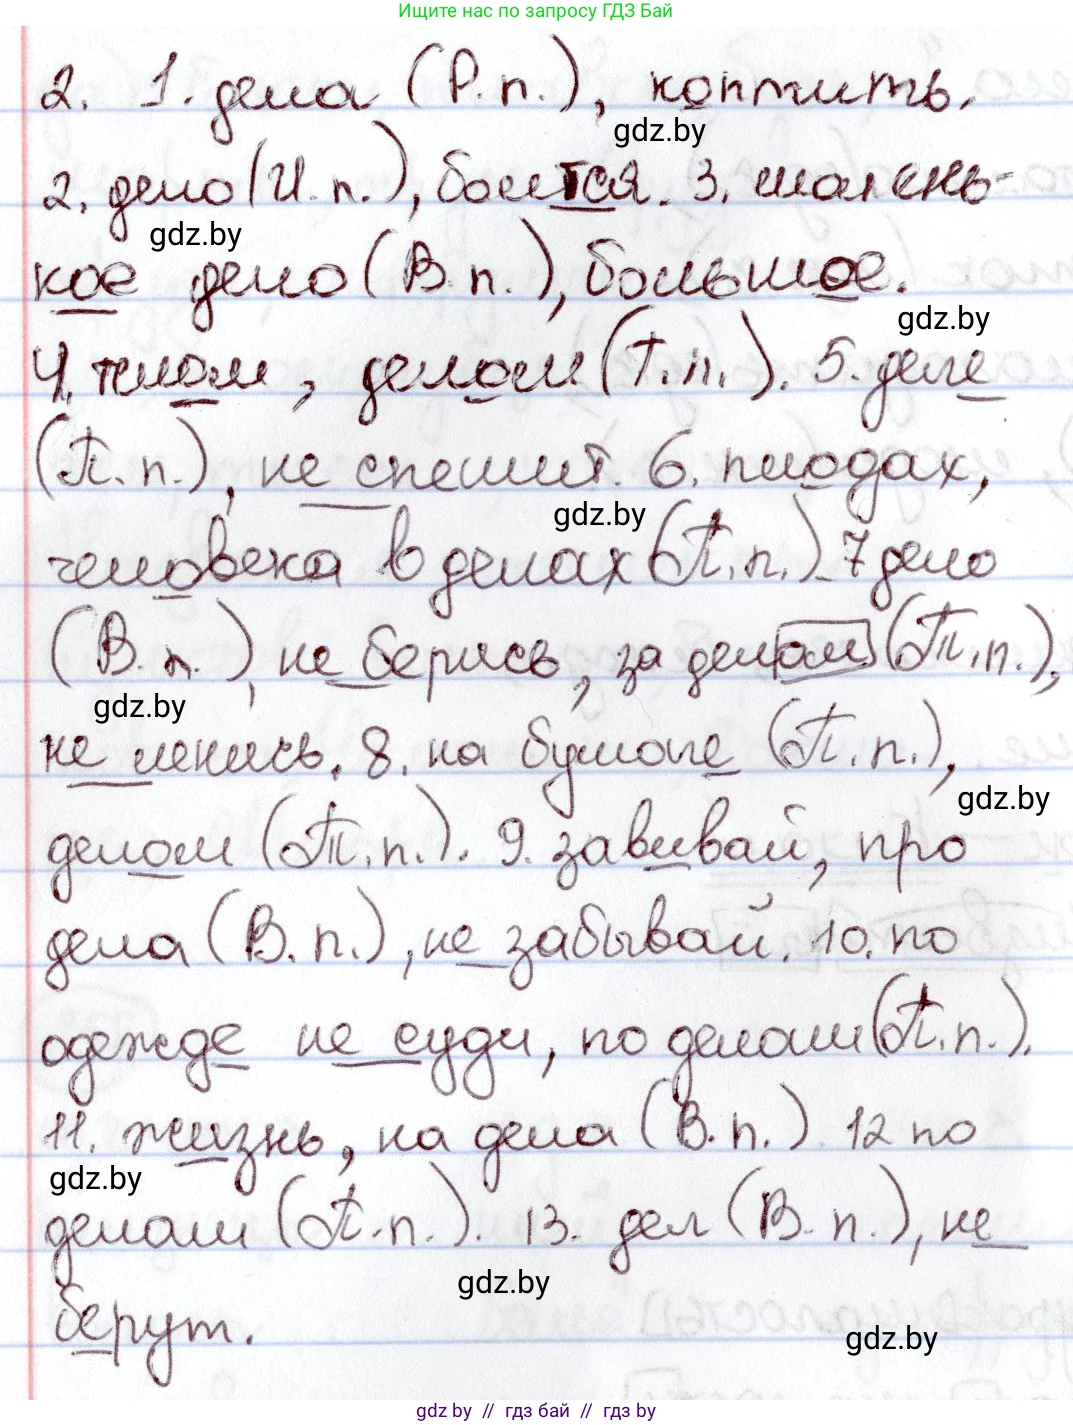 Ищите нас по запросу ГДЗ Бай
2. 1. дела (Р.п.), коптить.
gdz.by
2. дело (И.п.), боится. 3. малень-
gdz.by
кое дело (В.п.), большое.
gdz.by
4. телом, делом (Т.п.). 5. деле
(П.п.), не спешит. 6. плодах,
gdz.by
человека в делах (П.п.). 7 дело
(В.п.), не берись, за делом (Т.п.),
gdz.by
не ленись. 8. на бумаге (П.п.),
gdz.by
делом (Т.п.). 9. завивай, про
дела (В.п.), не забывай. 10. по
одежде не суди, по делам (П.п.).
11. жизнь, на дела (В.п.). 12 по
gdz.by
делам (П.п.). 13. дел (В.п.), не
gdz.by
берут.
gdz.by
gdz.by // гдз бай // гдз by